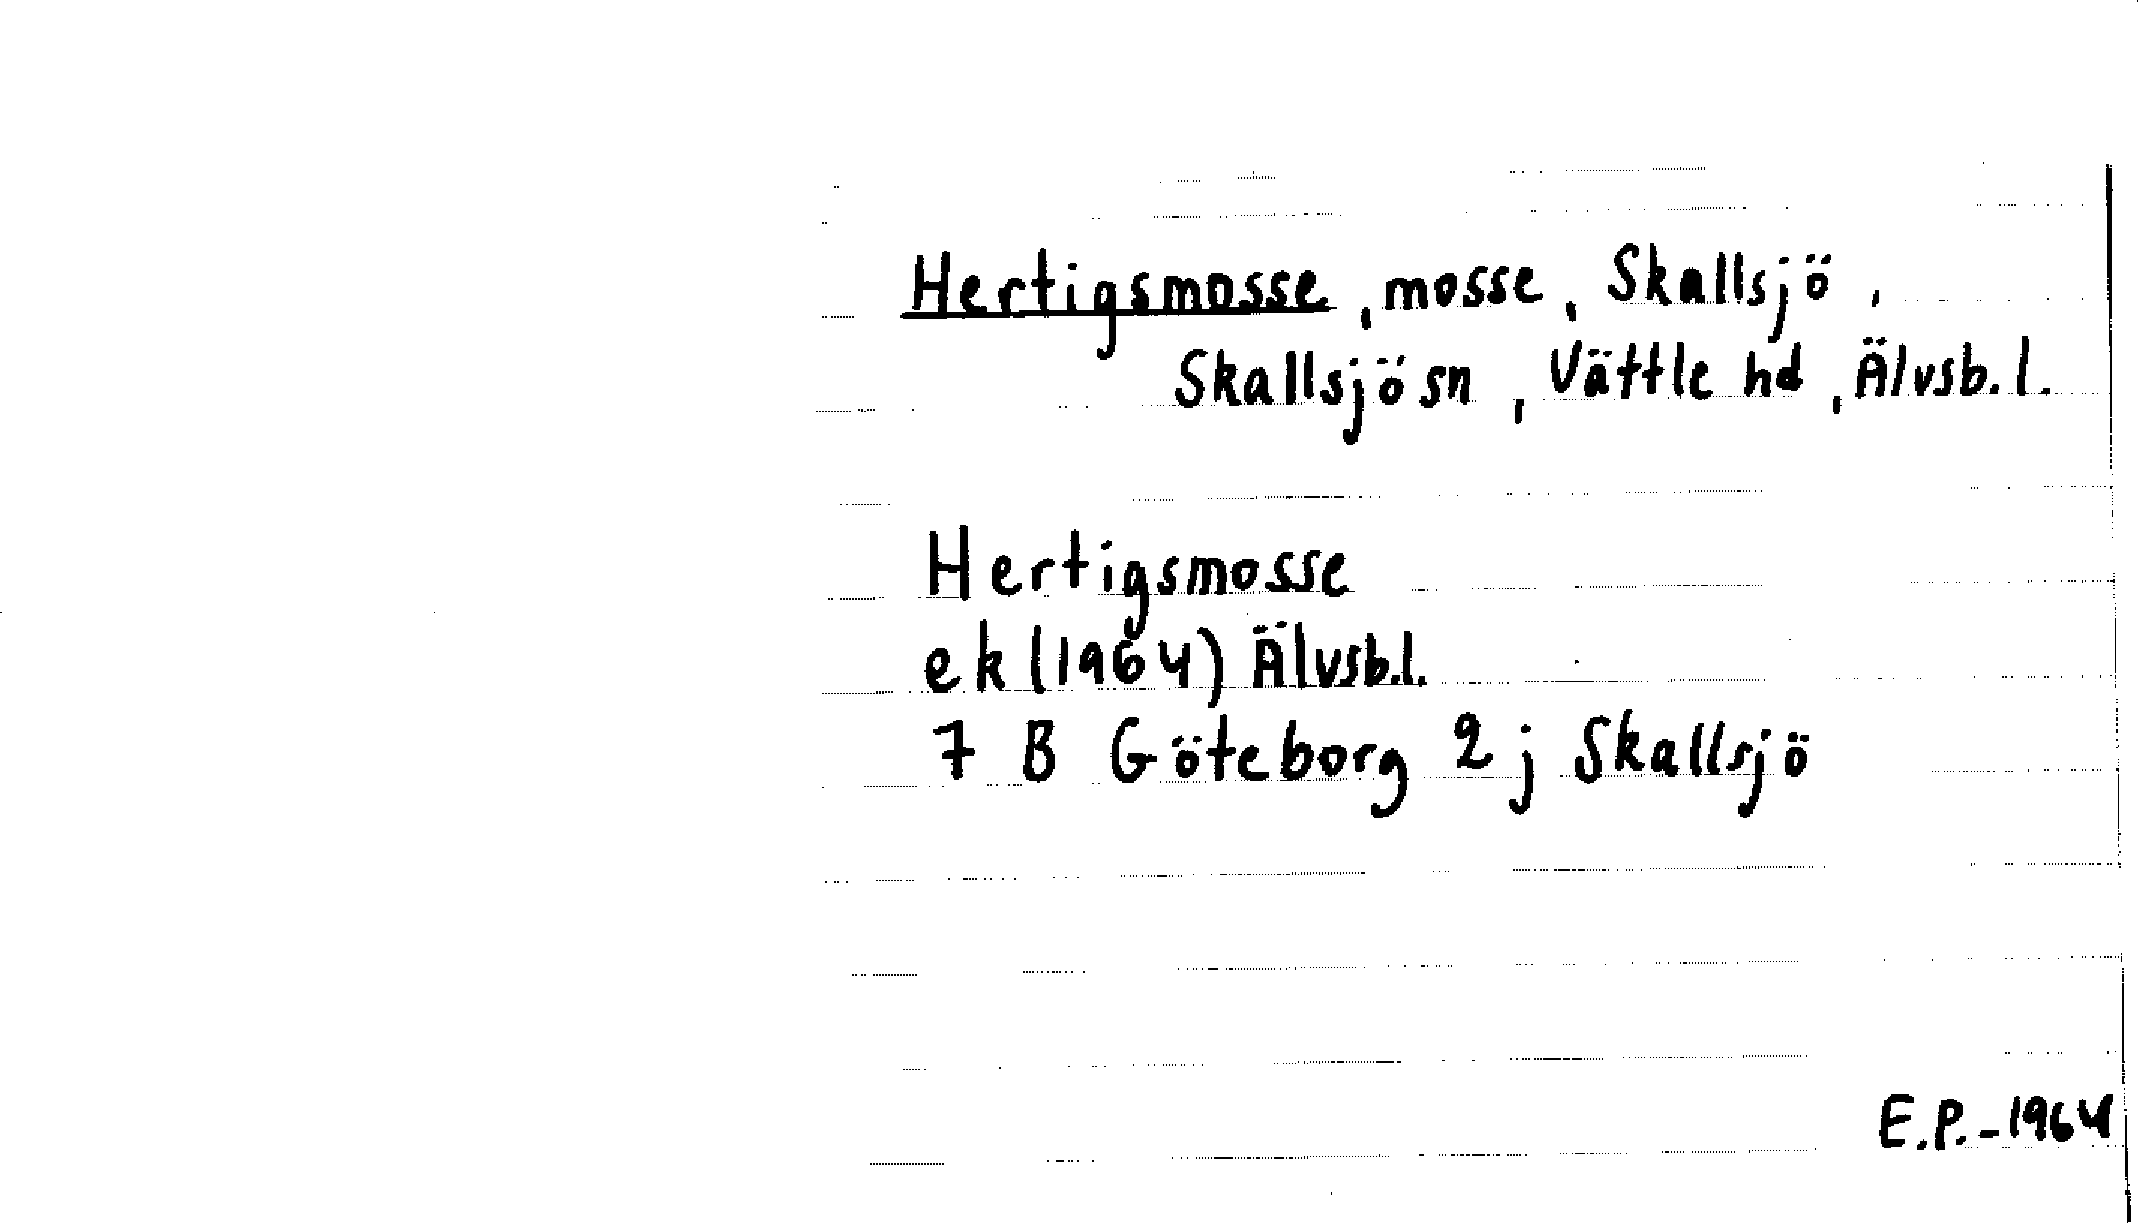 Hertigsmosse, mosse, Skallsjö,
Skallsjö sn, Vättle hd, Älvsb. l.
Hertigsmosse
ek (1964) Älvsb.l.
7 B Göteborg 2 j Skallsjö
E.P.-1964